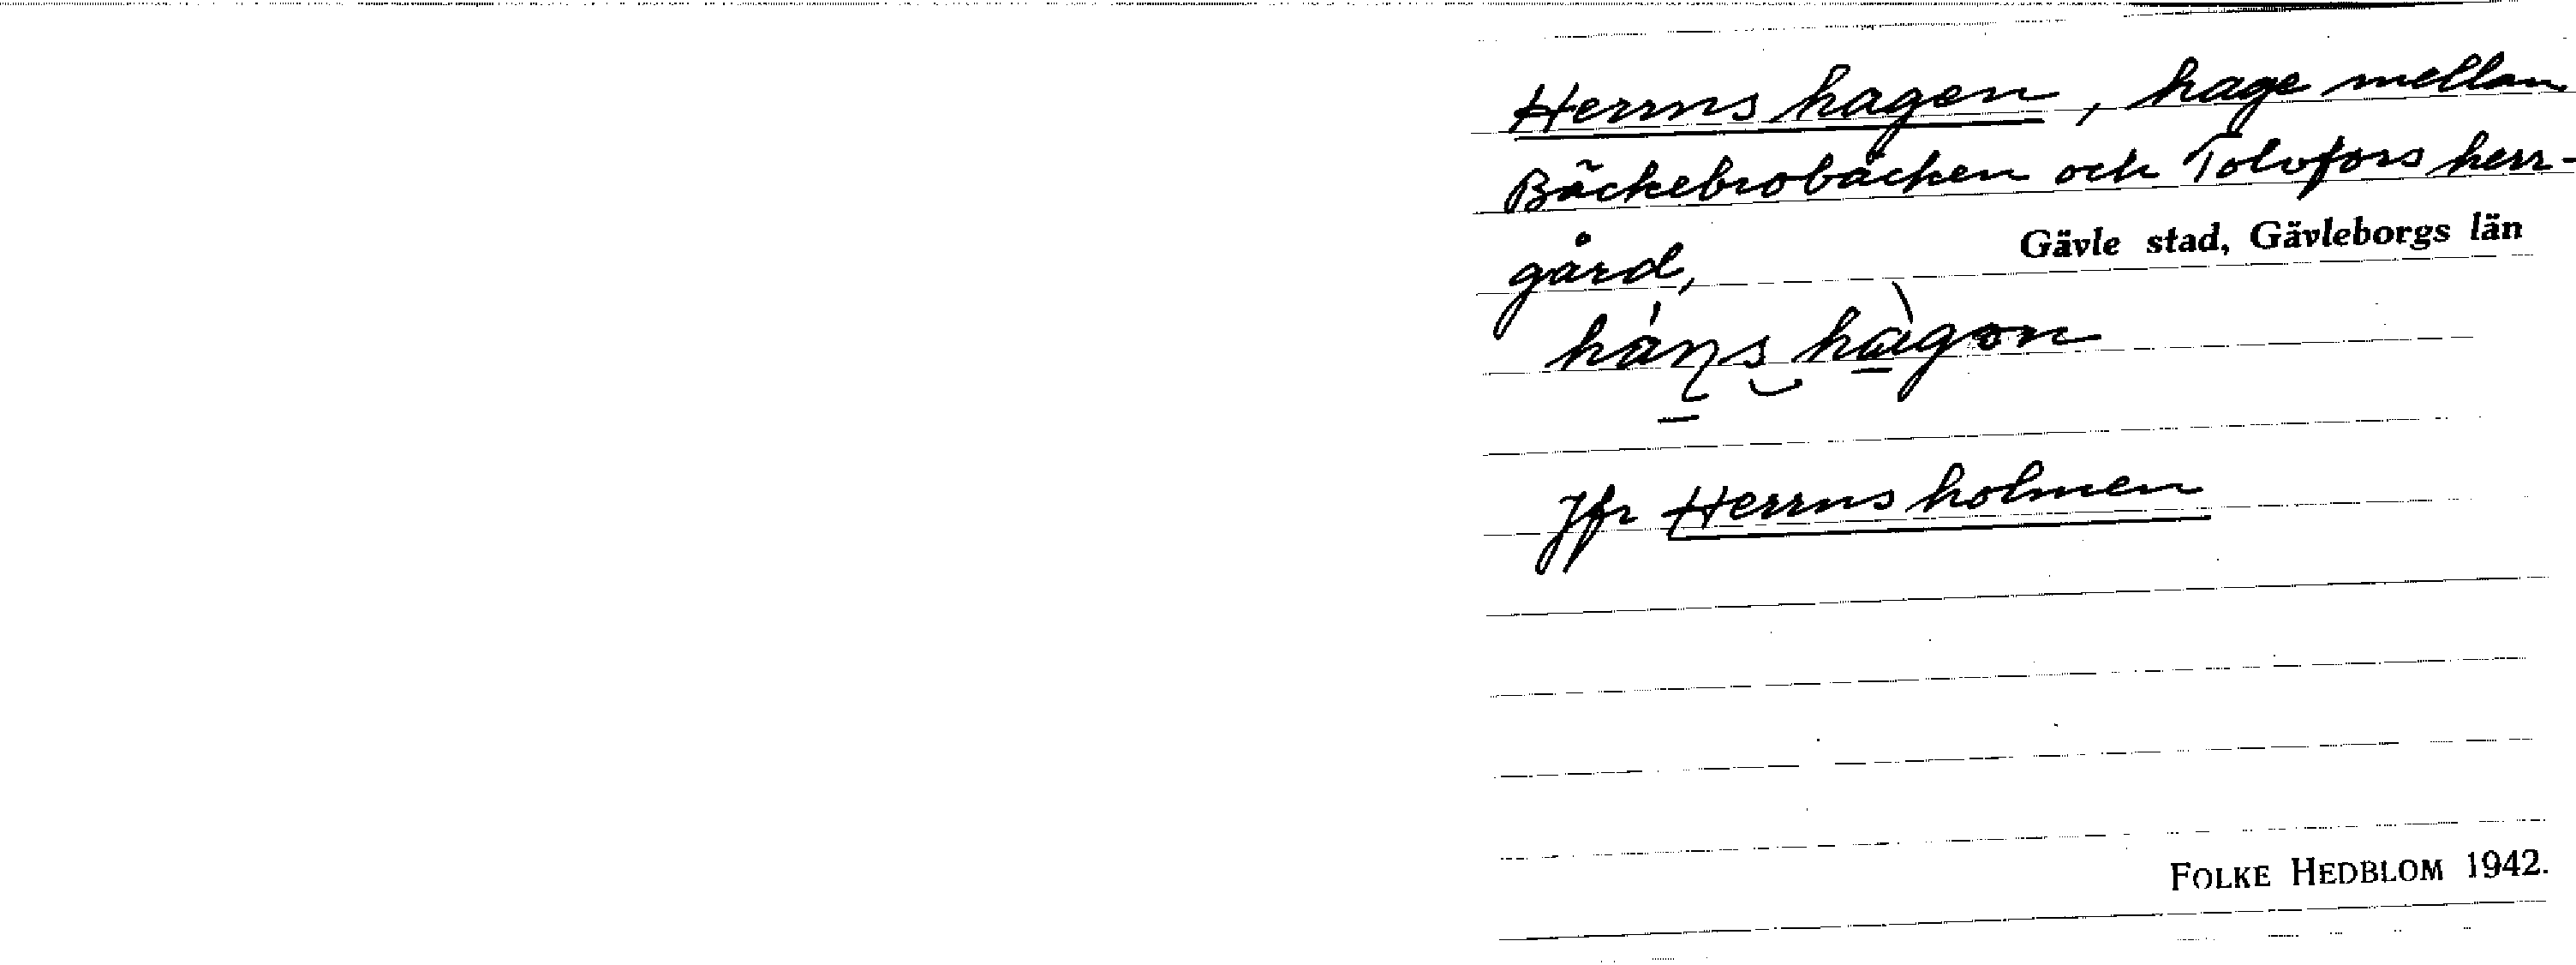 Herrns hagen, hage mellan
Bäckebrobäcken och Tolvfors herr-
gård,
Gävle stad, Gävleborgs län
Jfr Herrns holmen
FOLKE HEDBLOM 1942.